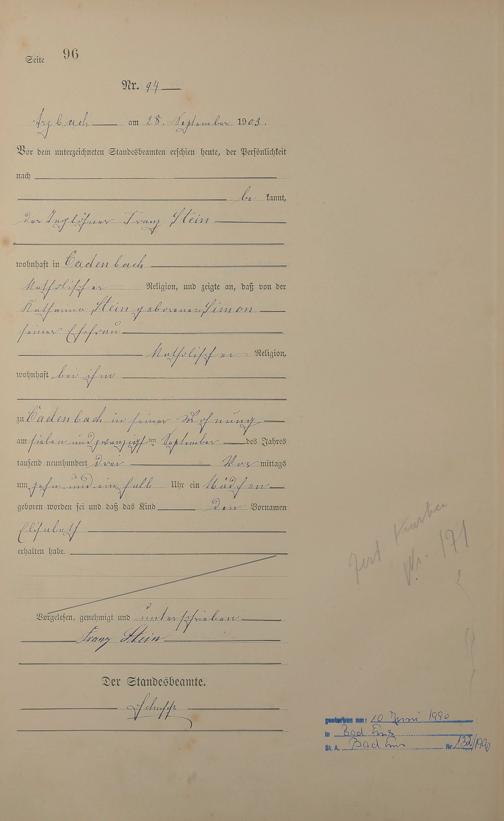 Seite 96
Nr. 94
Arzbach am 28. September 1903.
Vor dem unterzeichneten Standesbeamten erschien heute, der Persönlichkeit
nach
be kannt,
der Taglöhner Franz Stein
wohnhaft in Cadenbach
Katholischer Religion, und zeigte an, daß von der
Katharina Stein geborenen Simon
seiner Ehefrau
Katholischer Religion,
wohnhaft bei ihm
zu Cadenbach in seiner Wohnung
am sieben und zwanzigsten September des Jahres
tausend neunhundert drei Vor mittags
um zehn und ein halb Uhr ein Mädchen
geboren worden sei und daß das Kind den Vornamen
Elisabeth
erhalten habe.
Vorgelesen, genehmigt und unterschrieben
Franz Stein
Der Standesbeamte.
Nr. 171
gestorben am: 10 Juni 1990
in Bad Ems
St. A. Bad Ems Nr. 132/1990